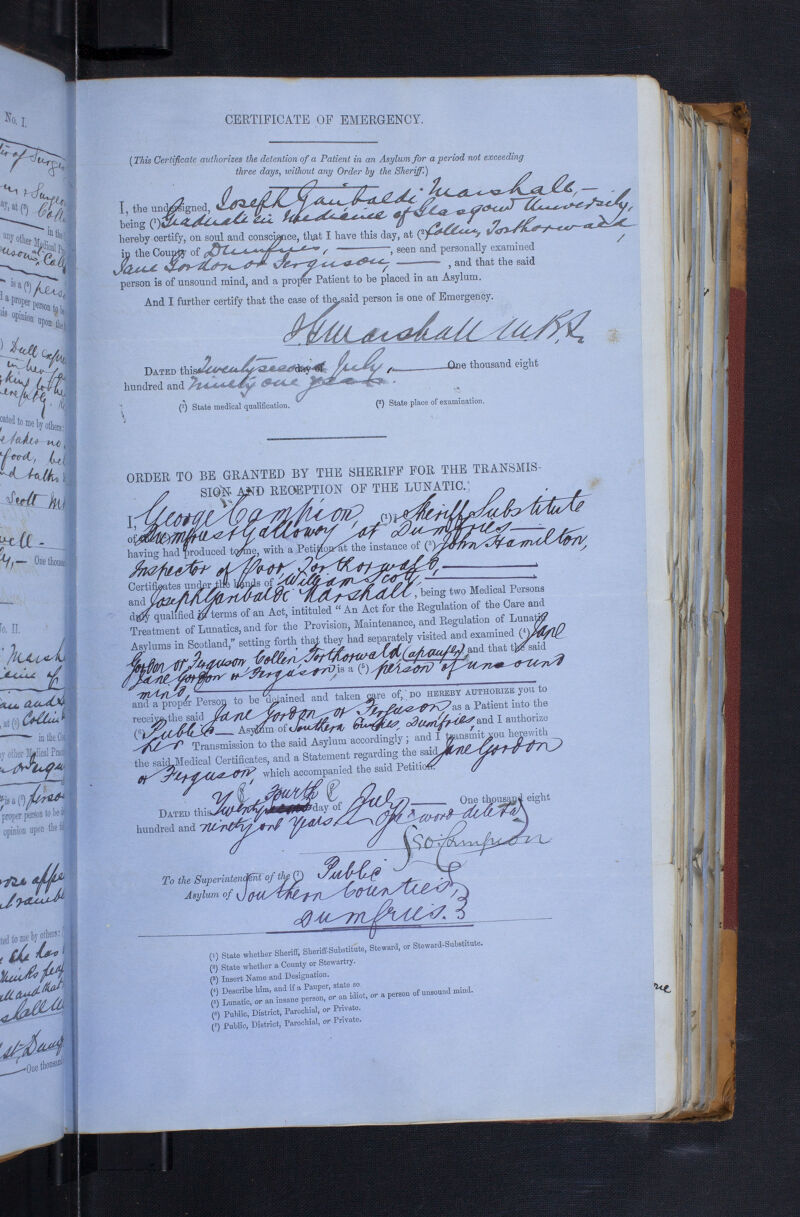 CERTIFICATE OF EMERGENCY.
(This Certificate authorizes the detention of a Patient in an Asylum for a period not exceeding
three days, without any Order by the Sheriff.)
I, the undersigned, Joseph Garibaldi Marshall, —
being (¹) Graduate in Medicine of Glasgow University,
hereby certify, on soul and conscience, that I have this day, at (²) Collin, Torthorwald,
in the County of Dumfries, —, seen and personally examined
Jane Gordon or Ferguson, —, and that the said
person is of unsound mind, and a proper Patient to be placed in an Asylum.
And I further certify that the case of the said person is one of Emergency.
JGMarshall M.B.
DATED this Twenty second day of July, — One thousand eight
hundred and ninety one years.
(¹) State medical qualification. (²) State place of examination.
ORDER TO BE GRANTED BY THE SHERIFF FOR THE TRANSMIS-
SION AND RECEPTION OF THE LUNATIC.
I, George Campion, (¹) Sheriff Substitute
of Dumfries & Galloway at Dumfries —
having had produced to me, with a Petition at the instance of (³) John Hamilton,
Inspector of Poor, Torthorwald, —
Certificates under the hands of William Scott, —
and Joseph Garibaldi Marshall, being two Medical Persons
duly qualified in terms of an Act, intituled "An Act for the Regulation of the Care and
Treatment of Lunatics, and for the Provision, Maintenance, and Regulation of Lunatic
Asylums in Scotland," setting forth that they had separately visited and examined (⁴) Jane
Gordon or Ferguson Collin Torthorwald (a pauper) and that the said
Jane Gordon or Ferguson, is a (⁵) person of unsound
mind, —
and a proper Person to be detained and taken care of, DO HEREBY AUTHORIZE you to
receive the said Jane Gordon or Ferguson, as a Patient into the
(⁶) Public — Asylum of Southern Counties, Dumfries, and I authorize
her Transmission to the said Asylum accordingly; and I transmit you herewith
the said Medical Certificates, and a Statement regarding the said Jane Gordon
or Ferguson, which accompanied the said Petition.
fourth
DATED this Twenty second day of July — One thousand eight
hundred and ninety one years — One word deleted
G O Campion
To the Superintendent of the (⁷) Public
Asylum of Southern Counties,
Dumfries.
(¹) State whether Sheriff, Sheriff-Substitute, Steward, or Steward-Substitute.
(²) State whether a County or Stewartry.
(³) Insert Name and Designation.
(⁴) Describe him, and if a Pauper, state so
(⁵) Lunatic, or an insane person, or an idiot, or a person of unsound mind.
(⁶) Public, District, Parochial, or Private.
(⁷) Public, District, Parochial, or Private.